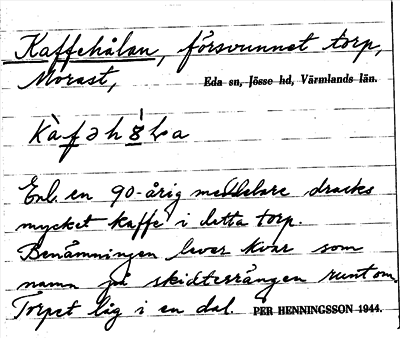 Kaffehålan, försvunnet torp,
Morast,
Eda sn, Jösse hd, Värmlands län.
Enl. en 90-årig meddelare dracks
mycket kaffe i detta torp.
Benämningen lever kvar som
namn på skidterrängen runtom.
Torpet låg i en dal. PER HENNINGSSON 1944.